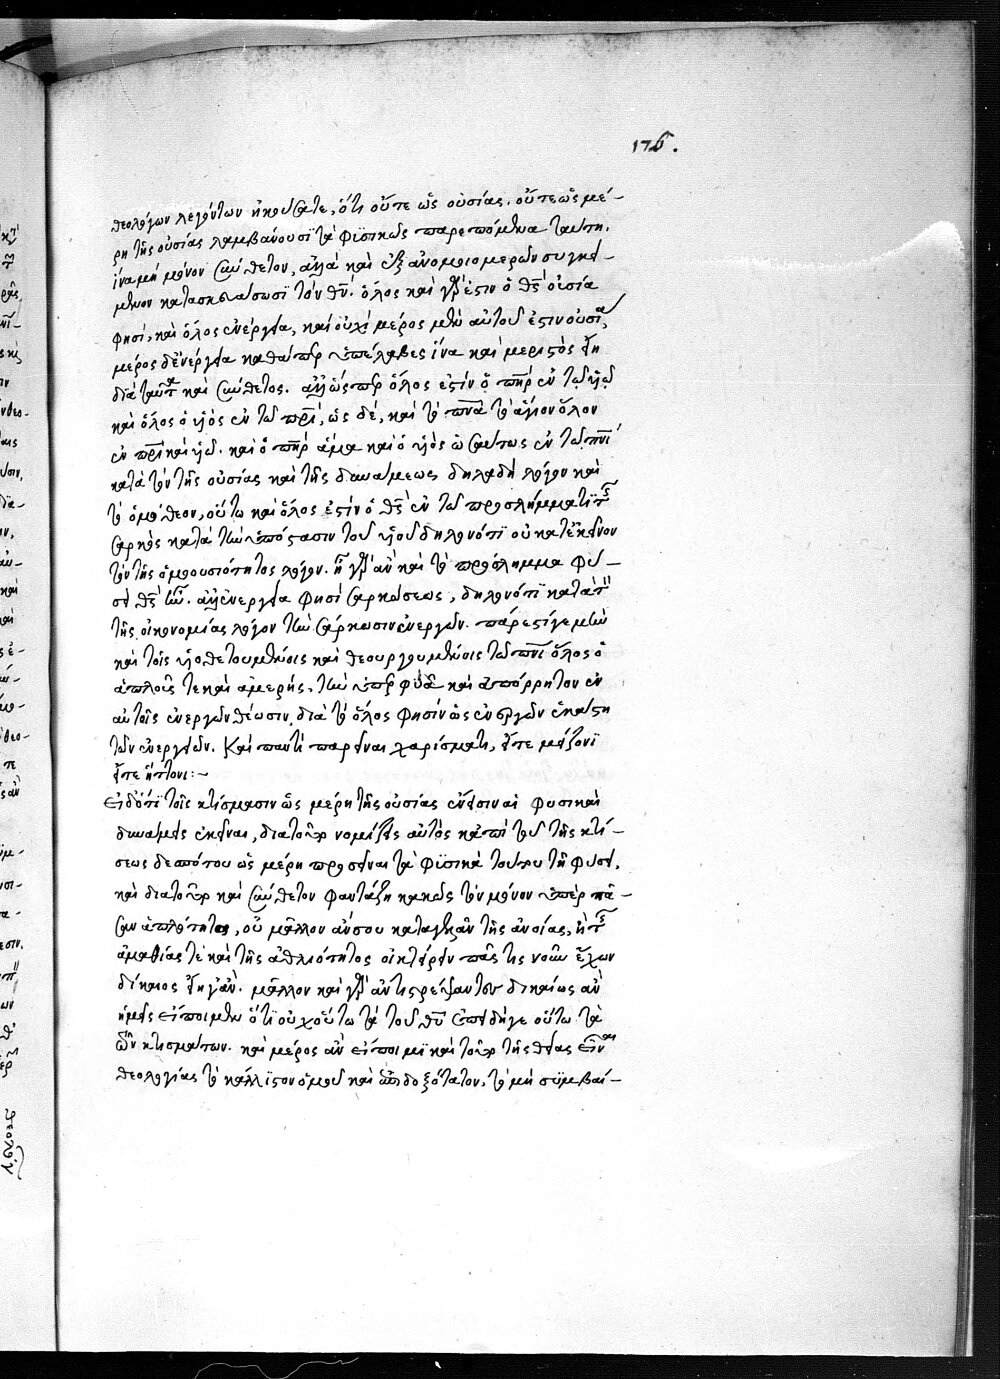 176.
θεολόγων λεγόντων ἠκούσατε, ὅτι οὔτε ὡς οὐσίας, οὔτε ὡς μέ-
ρη τῆς οὐσίας λαμβάνουσι τὰ φϋσικῶς παρεπόμενα ταύτη.
ἵνα μὴ μόνον σύνθετον, ἀλλὰ καὶ ἐξ ἀνομοιομερῶν συγκεί-
μενον κατασκευάσωσι τὸν θν̅. ὅλος καὶ γάρ ἐστιν ὁ θς̅ οὐσία
φησὶ, καὶ ὅλος ἐνέργεια, καὶ οὐχὶ μέρος μὲν αὐτοῦ ἐστιν οὐσία,
μέρος δ' ἐνέργεια καθάπερ ὑπέλαβες ἵνα καὶ μεριστὸς εἴη
διὰ ταῦτα καὶ σύνθετος. ἀλλ' ὥσπερ ὅλος ἐστὶν ὁ πηρ̅ ἐν τῶ υἱῶ
καὶ ὅλος ὁ υἱὸς ἐν τῶ πρι̅, ὡς δὲ, καὶ τὸ πνα̅ τὸ ἅγιον ὅλον
ἐν πρι̅ καὶ υἱῶ. καὶ ὁ πηρ̅ ἅμα καὶ ὁ υἱὸς ὡσαύτως ἐν τῶ πνι̅
κατὰ τὸν τῆς οὐσίας καὶ τῆς δυνάμεως δηλαδὴ λόγον καὶ
τὸ ὁμόθεον, οὕτω καὶ ὅλος ἐστὶν ὁ θς̅ ἐν τῶ προσλήμματι τῆς
σαρκὸς κατὰ τὴν ὑπόστασιν τοῦ υἱοῦ δηλονότι οὐ κατ' ἐκεῖνον
τὸν τῆς ὁμοουσιότητος λόγον. ἦ γὰρ ἂν καὶ τὸ πρόσλημμα φύ-
σει θς̅ ἦν. ἀλλ' ἐνεργεία φησὶ σαρκώσεως, δηλονότι κατὰ τὸν
τῆς οἰκονομίας λόγον τὴν σάρκωσιν ἐνεργῶν. πάρεστί γε μὴν
καὶ τοῖς υἱοθετουμένοις καὶ θεουργουμένοις τῶ πνι̅ ὅλος ὁ
ἁπλοῦς τε καὶ ἀμερὴς, τὴν ὑπὲρ φύσιν καὶ ἀπόρρητον ἐν
αὐτοῖς ἐνεργῶν θέωσιν, διὰ τὸ ὅλος φησὶν ὡς ἐνεργῶν ἑκάστη
τῶν ἐνεργειῶν. Καὶ παντὶ παρεῖναι χαρίσματι, εἴτε μείζονι
εἴτε ἥττονι:~
Εἰ δ' ὅτι τοῖς κτίσμασιν ὡς μέρη τῆς οὐσίας ἔνεισιν αἱ φυσικαὶ
δυνάμεις ἐκεῖναι, διατοῦτο νομίζεις αὐτὸς κἀπὶ τοῦ τῆς κτί-
σεως δεσπότου ὡς μέρη προσεῖναι τὰ φϋσικὰ τούτου τῆ φύσει,
καὶ διατοῦτο καὶ σύνθετον φαντάζη κακῶς τὸν μόνον ὑπὲρ πᾶ-
σαν ἁπλότητα, οὐ μᾶλλον ἄν σου καταγελᾶν τῆς ἀνοίας, ἢ τῆς
ἀμαθίας τὲ καὶ τῆς ἀθλιότητος οἰκτείρειν πᾶς τις νοῦν ἔχων
δίκαιος εἴη γ' ἄν. μᾶλλον καὶ γὰρ ἀντιστρέψαντες δικαίως ἂν
ἡμεῖς εἴποιμεν ὅτι οὐχ οὕτω τὰ τοῦ θυ̅ ἐπειδήγε οὕτω τὰ
τῶν κτισμάτων. καὶ μέρος ἂν εἴποιμι καὶ τοῦτο τῆς θείας εἶναι
θεολογίας τὸ κάλλιστον ὁμοῦ καὶ ἐνδοξότατον, τὸ μὴ σϋμβαί-